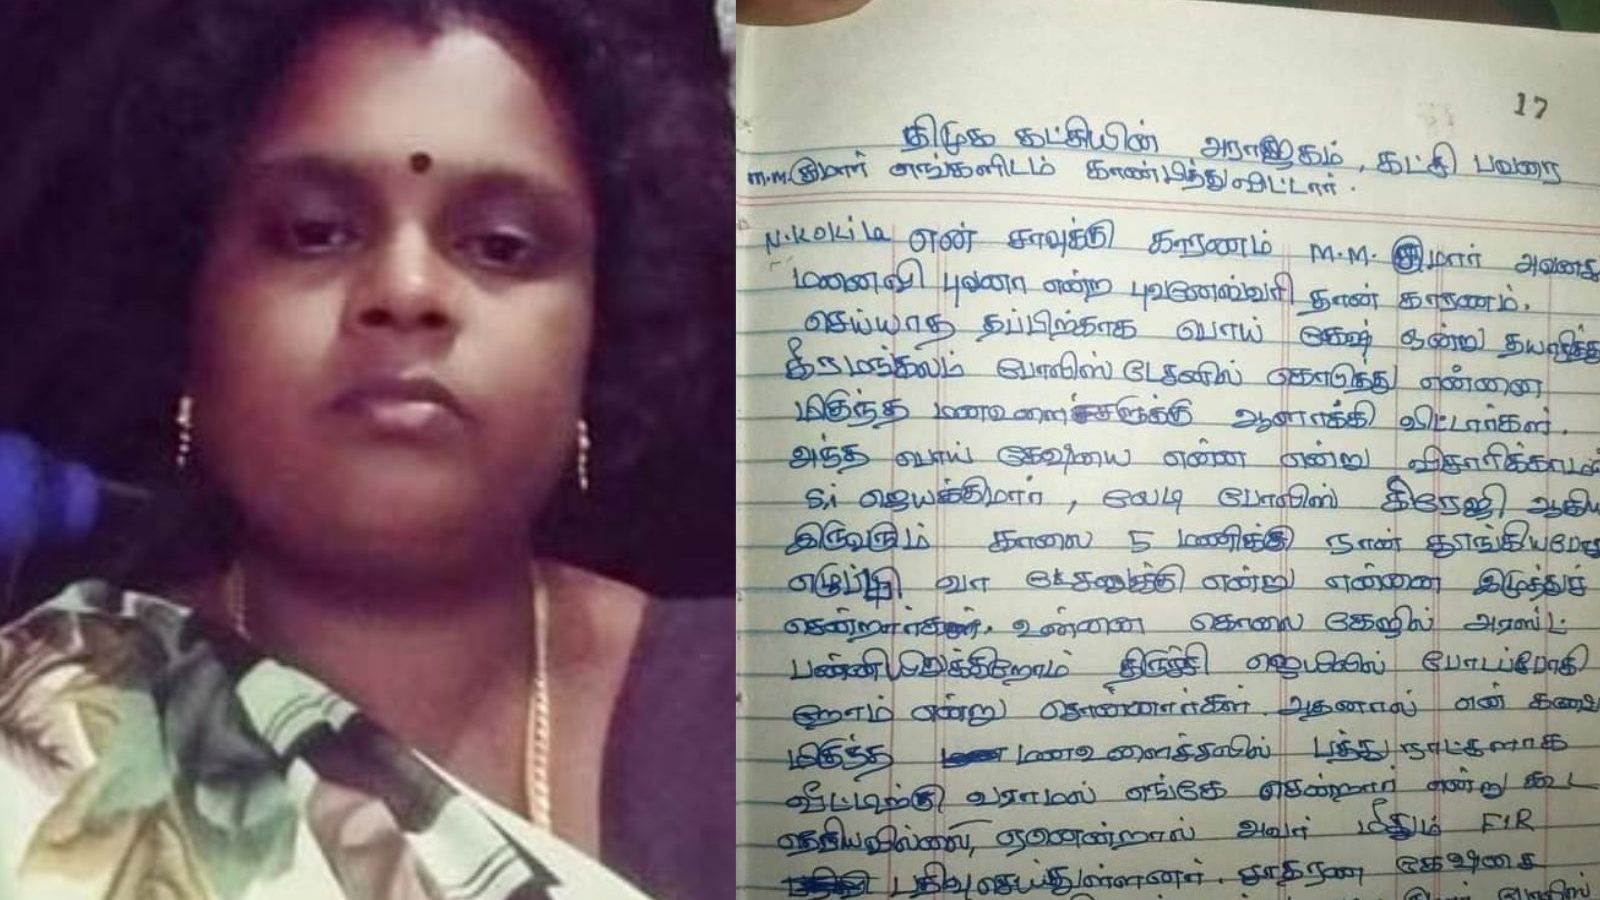 17
திமுக கட்சியின் அராஜகம், கட்சி பவரை
M.M. குமார் எங்களிடம் காண்பித்துவிட்டார்.
N.Kokila என் சாவுக்கு காரணம் M.M. குமார் அவனது
மனைவி புவனா என்ற புவனேஸ்வரி தான் காரணம்.
செய்யாத தப்பிற்காக பொய் கேஷ் ஒன்று தயாரித்து
கீரமங்கலம் போலிஸ் டேசனில் கொடுத்து என்னை
மிகுந்த மணஉளைச்சளுக்கு ஆளாக்கி விட்டார்கள்.
அந்த பொய் கேஷியை என்ன என்று விசாரிக்காமல்
S.I ஜெயக்குமார், லேடி போலிஸ் கிரேஜி ஆகிய
இருவரும் காலை 5 மணிக்கு நான் தூங்கியபோது
எழுப்பி வா டேசனுக்கு என்று என்னை இழுத்துச்
சென்றார்கள். உன்னை கொலை கேஜில் அரஸ்ட்
பண்ணிருக்கிறோம் திருச்சி ஜெயிலில் போடப்போகி
றோம் என்று சொன்னார்கள். அதனால் என் கணவர்
மிகுந்த மணஉளைச்சலில் பத்து நாட்களாக
வீட்டிற்கு வராமல் எங்கே சென்றார் என்று கூட
தெரியவில்லை, ஏனென்றால் அவர் மீதும் FIR
பதிவுசெய்துள்ளனர். சாதாரண கேஷை
போலிஸ்